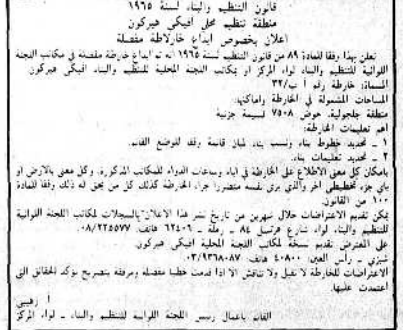 قانون التنظيم والبناء لسنة ١٩٦٥
منطقة تنظيم محلي افيكي هيركون
اعلان بخصوص ايداع خارطة مفصلة
نعلن بهذا وفقا للمادة ٨٩ من قانون التنظيم لسنة ١٩٦٥ انه تم ايداع خارطة مفصلة في مكاتب اللجنة
اللوائية للتنظيم والبناء لواء المركز او بمكاتب اللجنة المحلية للتنظيم والبناء افيكي هيركون
المسماة: خارطة رقم أ ب/٣٢
المساحات المشمولة في الخارطة واماكنها:
منطقة جلجولية. حوض ٧٥٠٨ قسيمة جزئية
اهم تعليمات الخارطة:
١ ـ تحديد خطوط بناء ونسب بناء لمبان قائمة وفقا للوضع القائم.
٢ ـ تحديد تعليمات بناء.
بامكان كل معني الاطلاع على الخارطة في ايام وساعات الدوام للمكاتب المذكورة. وكل معني بالارض او
باي جزء تخطيطي اخر والذي يرى نفسه متضررا جراء الخارطة كذلك كل من يحق له ذلك وفقا للمادة
١٠٠ من القانون.
يمكن تقديم الاعتراضات خلال شهرين من تاريخ نشر هذا الاعلان بالسجلات لمكاتب اللجنة اللوائية
للتنظيم والبناء لواء شارع هرتسل ٨٤ ـ رملة ـ ٦٢٤٠٦ هاتف ٠٨/٢٢٥٥٧٧
على المعترض تقديم نسخة لمكاتب اللجنة المحلية افيكي هيركون
شيزي ـ رأس العين ٤٠٨٠٠ هاتف ٠٣/٩٣٦٨٠٨٧
الاعتراضات للخارطة لا تقبل ولا تناقش الا اذا قدمت خطيا مفصلة ومرفقة بتصريح يؤكد الحقائق التي
اعتمدت عليها.
أ
القائم باعمال رئيس اللجنة اللوائية للتنظيم والبناء ـ لواء المركز